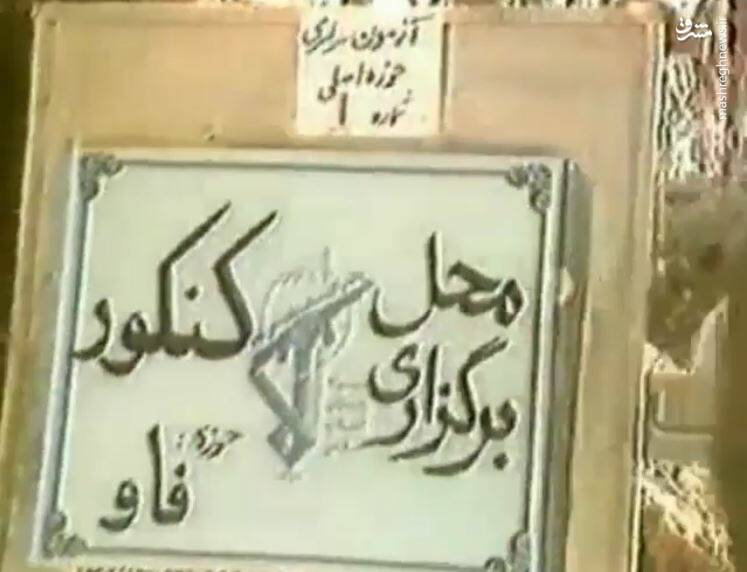 آزمون سراسری
حوزه اصلی
شماره ۱
محل
برگزاری
کنکور
حوزه:
فاو
مشرق
mashreghnews.ir